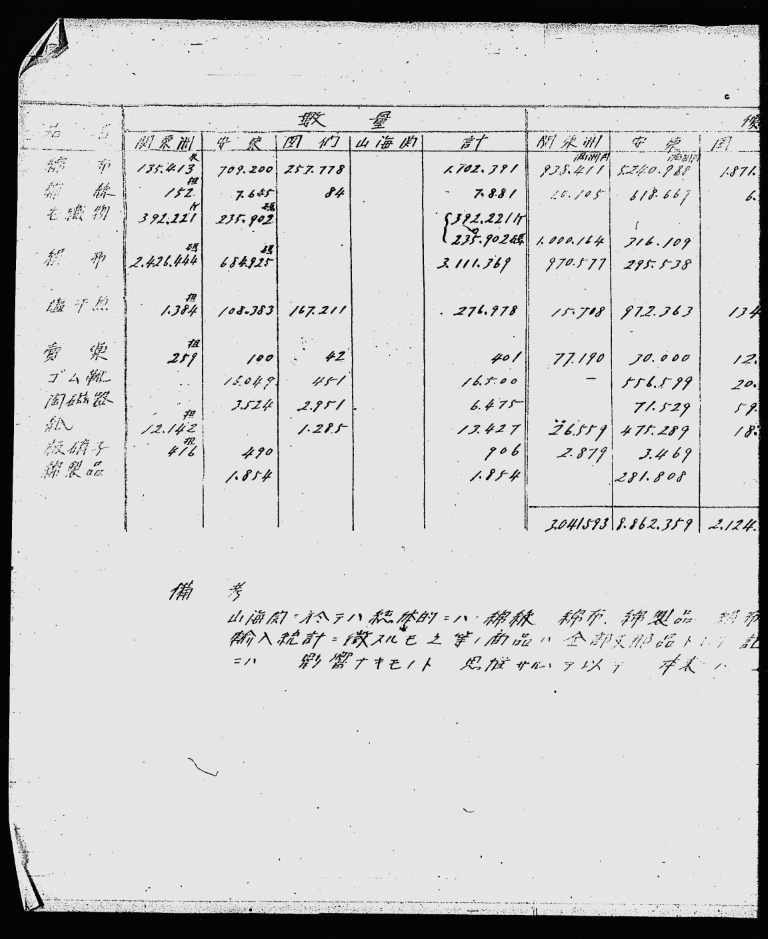 品名 数量 價
関東洲 安東 図們 山海関 計 関東洲 安東 図
綿布 135.413 709.200 257.778 1.702.391 938.411 5.240.988 1.871.
綿絲 担 152 7.645 84 7.881 618.667 6.
毛織物 392.221 235.902 392.221
235.902 1.000.164 316.109
絹布 2.426.444 684.925 3.111.369 970.577 295.538
塩干魚 担 1.384 108.383 167.211 276.978 15.708 972.363 134
賣薬 担 259 100 42 401 77.190 30.000 12.
ゴム靴 16.049 451 16.500 — 556.599 20.
陶磁器 3.524 2.951 6.475 71.529 59.
紙 担 12.142 1.285 13.427 26.559 475.289 18.
板硝子 担 416 490 906 2.879 3.469
綿製品 1.854 1.854 281.808
3.041.593 8.862.359 2.124.
備考
山海関ニ於テハ総体的ニハ綿絲 綿布、綿製品 絹布
輸入統計ニ徴スルモ之等ノ商品ハ全部支那品トシテ記
ニハ 影響ナキモノト 思惟サル、ヲ以テ 本表ハ